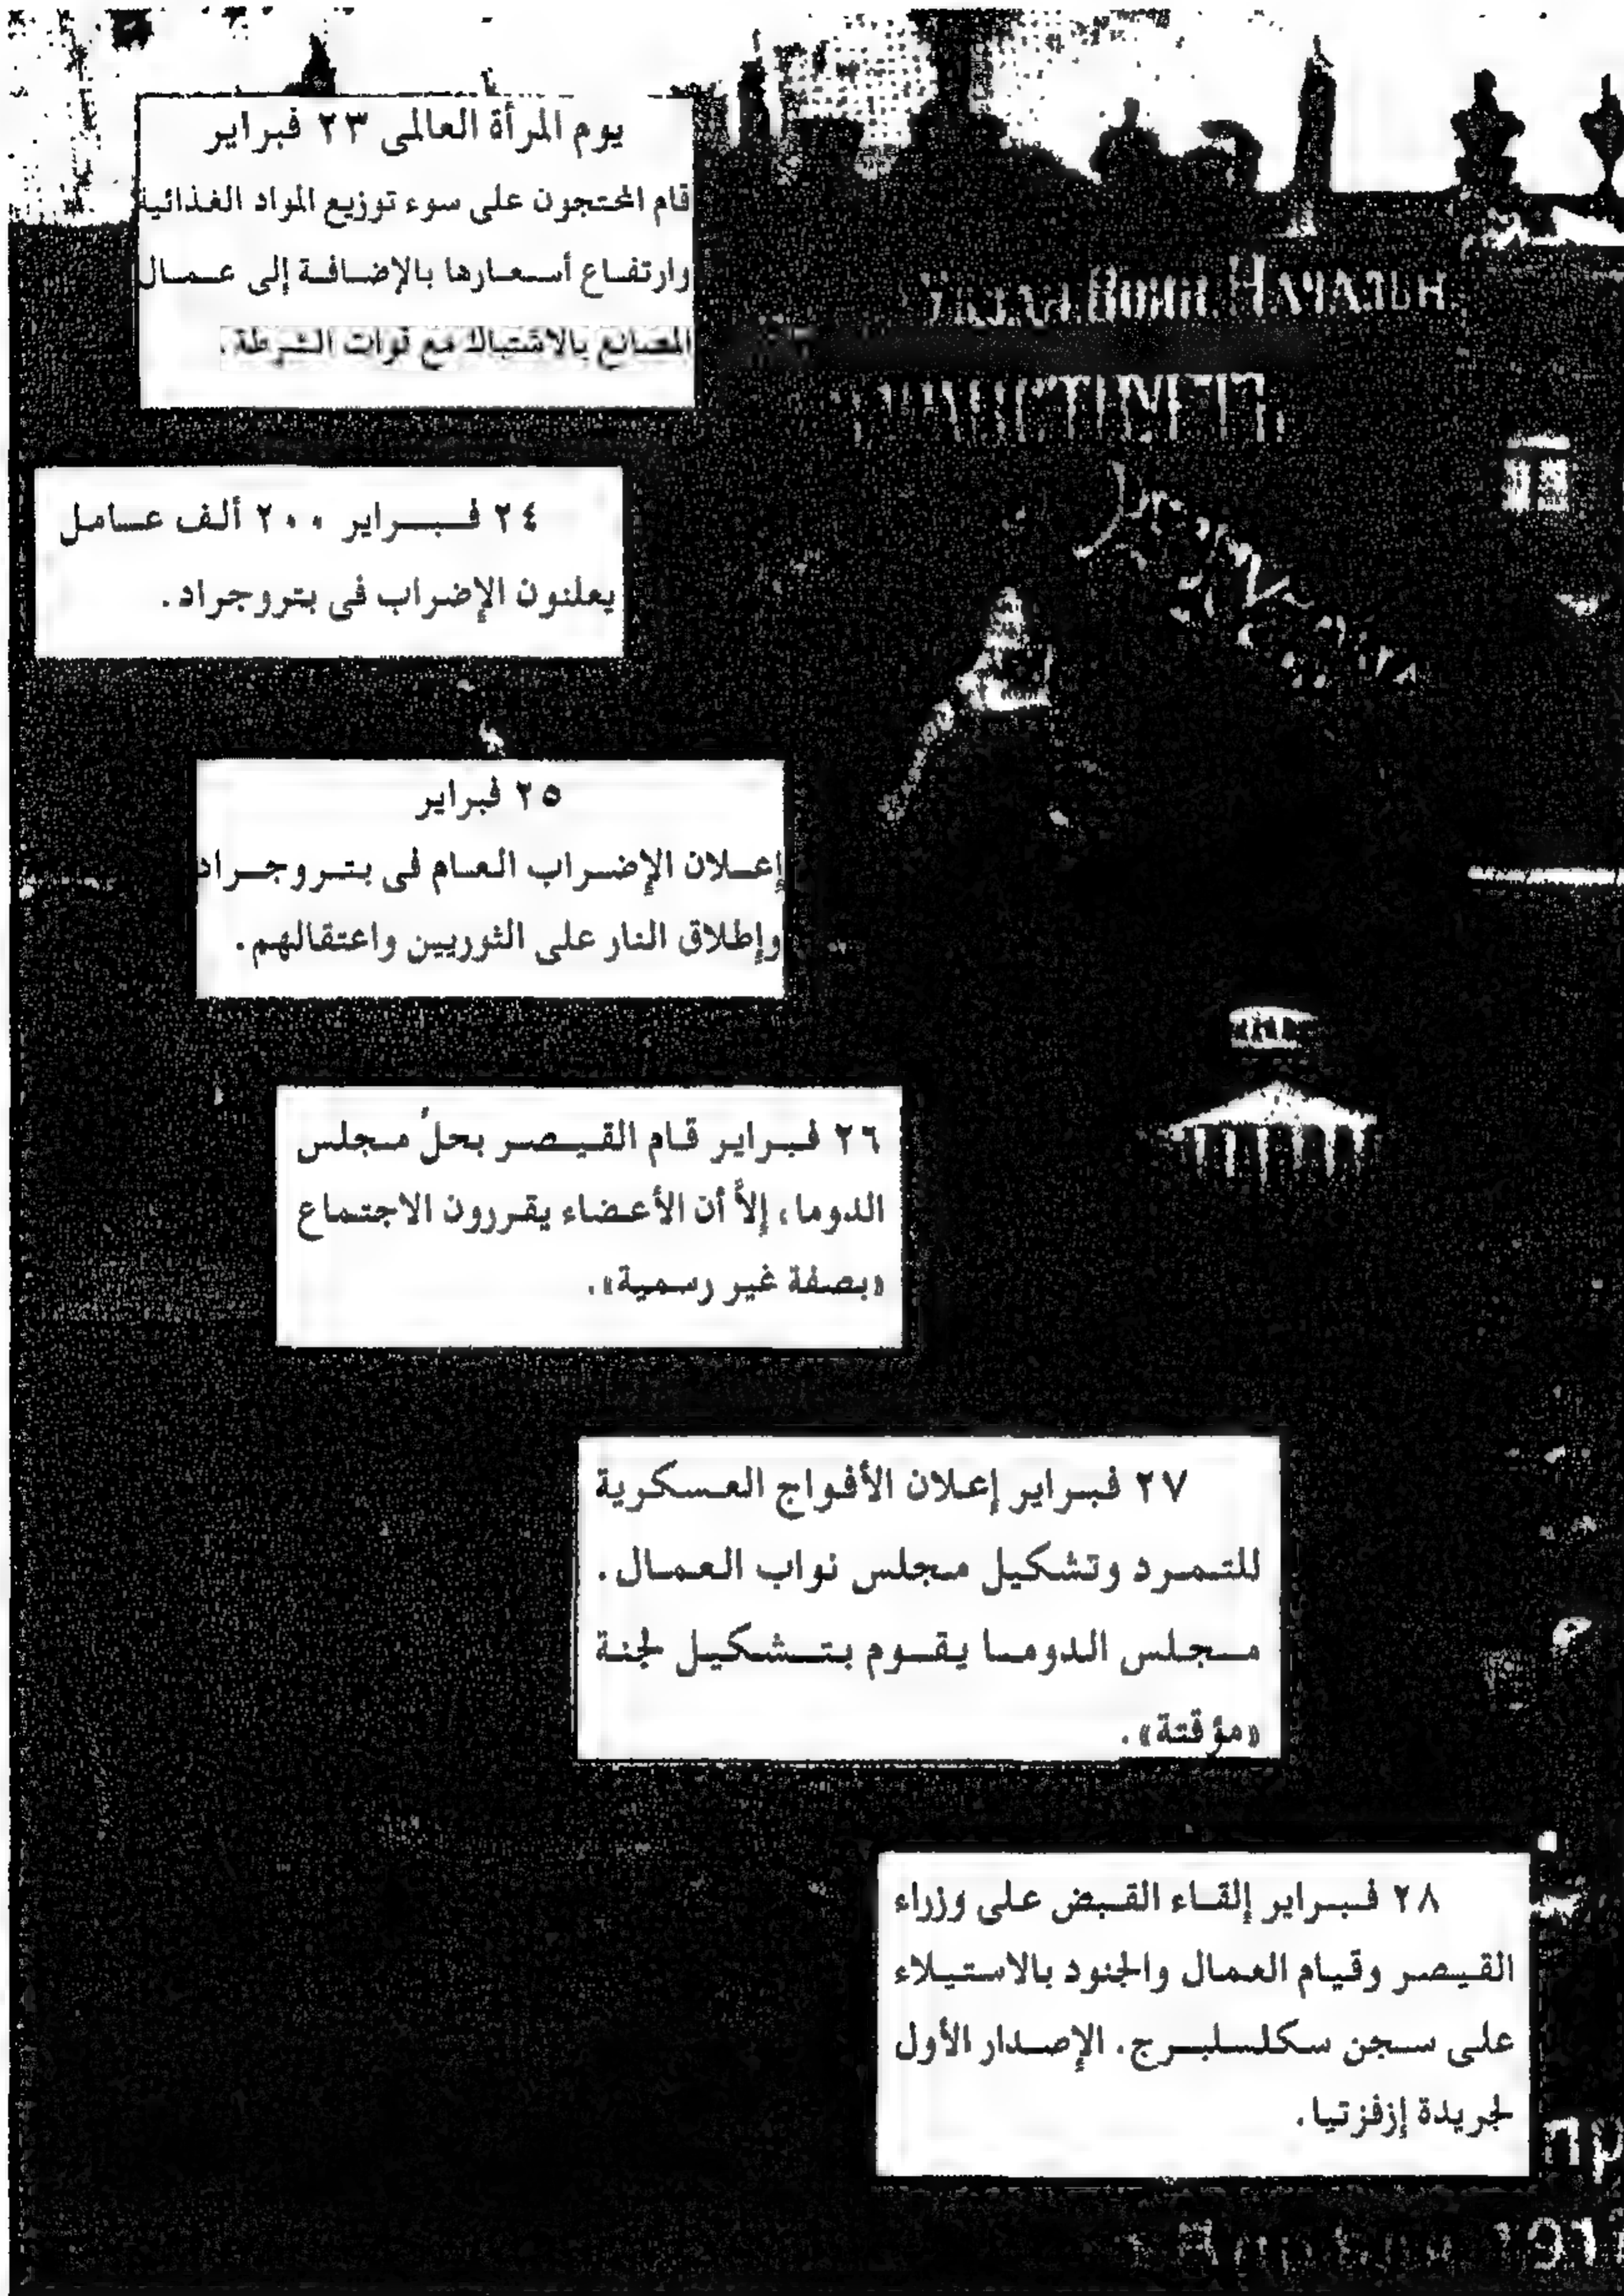 يوم المرأة العالمى ٢٣ فبراير
قام المحتجون على سوء توزيع المواد الغذائية
وارتفاع أسعارها بالإضافة إلى عمال
المصانع بالاشتباك مع قوات الشرطة.
٢٤ فبراير ٢٠٠ ألف عامل
يعلنون الإضراب فى بتروجراد.
٢٥ فبراير
إعلان الإضراب العام فى بتروجراد
وإطلاق النار على الثوريين واعتقالهم.
٢٦ فبراير قام القيصر بحلّ مجلس
الدوما، إلاّ أن الأعضاء يقررون الاجتماع
«بصفة غير رسمية».
٢٧ فبراير إعلان الأفواج العسكرية
للتمرد وتشكيل مجلس نواب العمال.
مجلس الدوما يقوم بتشكيل لجنة
«مؤقتة».
٢٨ فبراير إلقاء القبض على وزراء
القيصر وقيام العمال والجنود بالاستيلاء
على سجن سكلسلبرج. الإصدار الأول
لجريدة إزفزتيا.